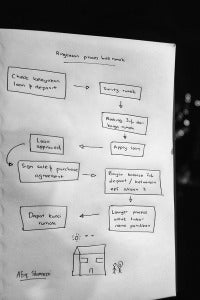 Ringkasan proses beli rumah
Check kelayakan
loan & deposit
Survey rumah
Booking fee dgn
harga rumah
Apply loan
Loan
approved
Sign sale & purchase
agreement
Bayar balance
deposit / kelewatan
Lawyer proses
untuk tukar
nama pemilikan
Dapat kunci
rumah